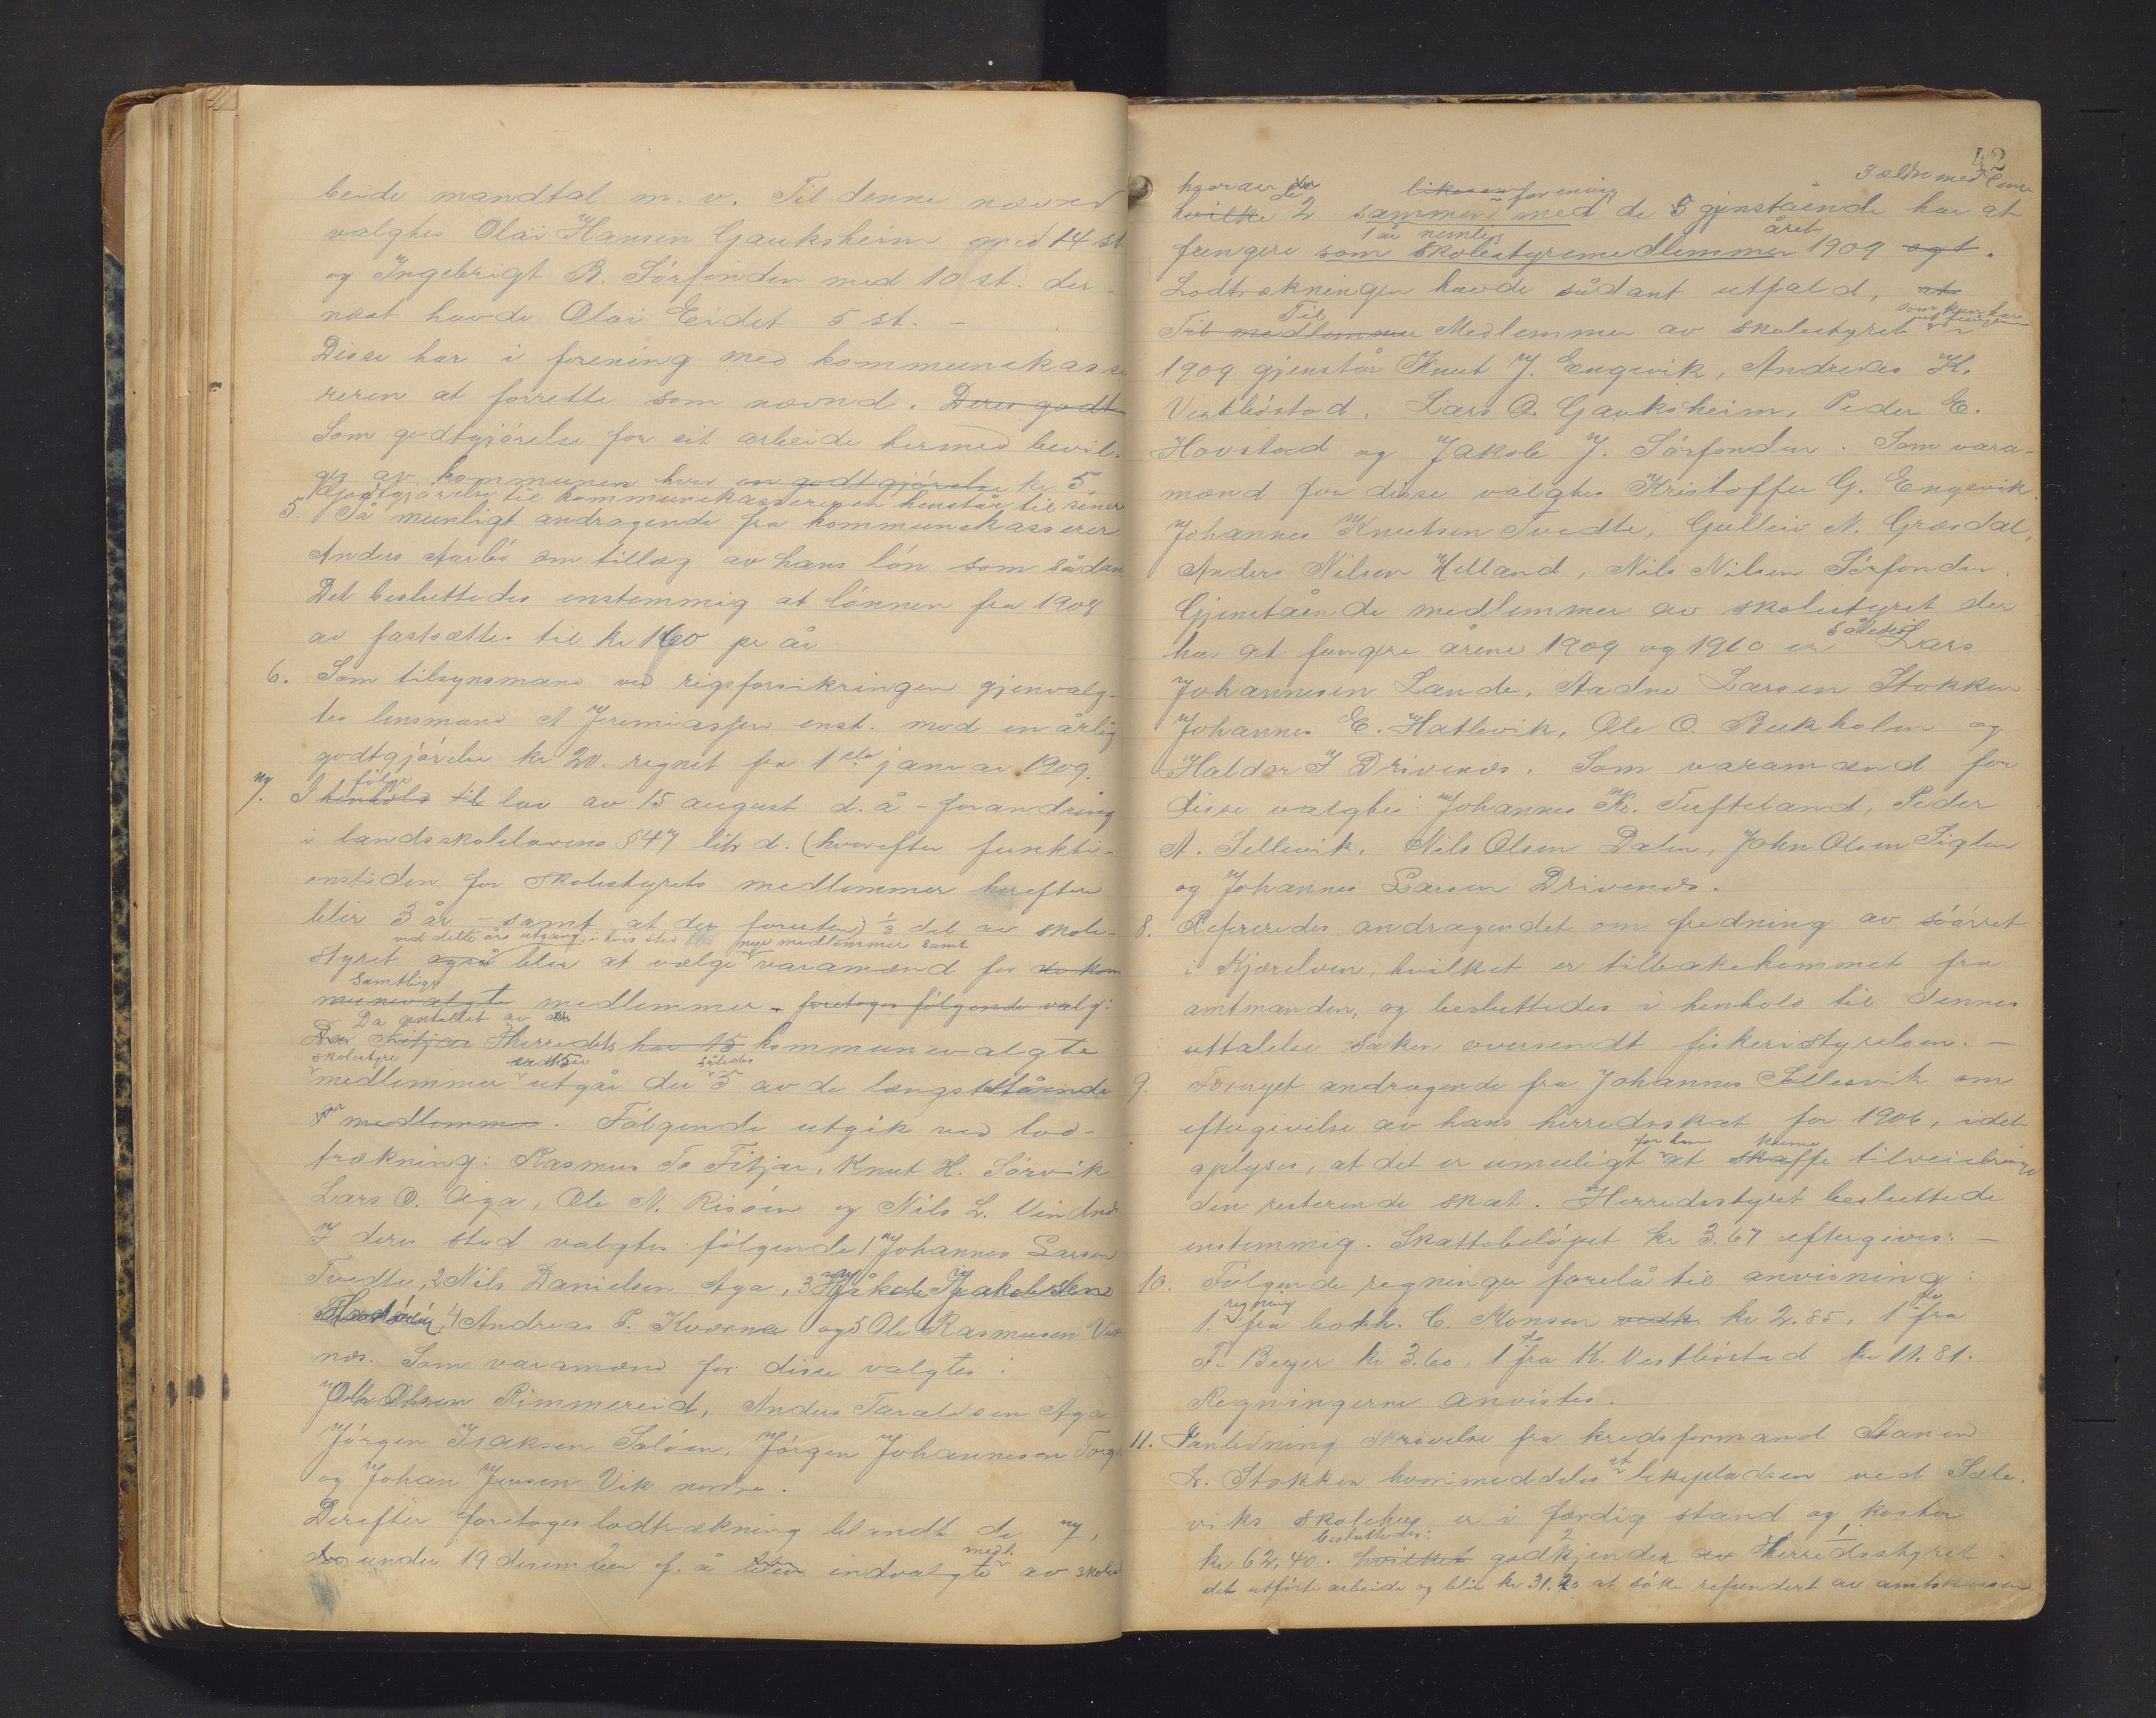 beide mandtal m. v. Til denne nævnd
valgtes Olai Hansen Gauksheim med 14 st.
og Ingebrigt B. Sörfonden med 10 st. der-
næst havde Olai Eidet 5 st. -
Disse har i forening med kommunekasse
reren at forrette som nævnd. Deres godt
Som godtgjörelse for sit arbeide hermed bevil-
ges av kommunen hver en godtgjörelse kr 5.
Godtgjörelse til kommunekassereren henstår til senere
5. Få munligt andragende fra kommunekasserer
Anders Aarbö om tillæg av hans lön som sådan
Det besluttedes enstemmig at lönnen fra 1908
av fastsættes til kr 160 pr år
6. Som tilsynsmand ved rigsforsikringen gjenvalg-
tes lensmand A Jeremiassen enst. med en årlig
godtgjörelse kr 20. regnet fra 1ste januar 1909.
følge
7. I henhold til lov av 15 august d. å - forandring
i landsskolelovens § 47 litr d. (hverefter funkti-
onstiden for skolestyrets medlemmer herefter
blir 3 år - samt at der foruten) 1/3 del av skole-
ved dette års utgang i hvis sted nye medlemmer samt
styret også blir at vælge varamænd for de kom
samtlige
munevalgte medlemmer - foretoges fölgende valg:
Da antallet av
Da Fitjar Herredets har 15 kommunevalgte
skolestyre er 15 således
medlemmer utgår der 5 av de længststående
medlemmer. Fölgende utgik ved lod-
trækning: Rasmus To Fitjar, Knut H. Sörvik
Lars O. Aga, Ole N. Risöen og Nils L. Vindnes
I deres sted valgtes fölgende 1 Johannes Larsen
Tvedte, 2 Nils Danielsen Aga, 3 Jakob Jakobsen
4 Andreas P. Kværne og 5 Ole Rasmussen Vest
nes. Som varamænd for disse valgtes:
Olsen Rimmereid, Anders Taraldsen Aga
Jörgen Isaksen Salöen, Jörgen Johannesen
og Johan Jensen Vik nordre.
Derefter foretoges lodtrækning blandt de 7,
medl.
der under 19 desember f. å blev indvalgte av skoles
42
3 ældre medlemer
hvorav de likesom forening
hvilke 2 sammen med de 3 gjenstående har at
1 år nemlig året
fungere som skolestyremedlemmer 1909 ogt.
Lodtrækningen havde sådant utfald, at
Til som kun har
Til medlemmer Medlemmer av skolestyret
1909 gjenstår Knut J. Engevik, Andreas K.
Vestböstad, Lars O. Gauksheim, Peder E.
Hovstad og Jakob J. Sörfonden. Som vara-
mænd for disse valgtes Kristoffer G. Engevik,
Johannes Knutsen Tvedte, Gulleiv N. Græsdal,
Anders Nilsen Helland, Nils Nilsen Sörfonden.
Gjenstående medlemmer av skolestyret der
således
har at fungere årene 1909 og 1910 er Lars
Johannesen Lande, Aadne Larsen Stokken
Johannes E. Hatlevik, Ole O. Bukholm og
Haldor J Drivenes. Som varamænd for
disse valgtes: Johannes Kr. Tufteland, Peder
A. Sellevik, Nils Olsen Dalen, John Olsen Siglen
og Johannes Larsen Drivenes.
8. Refereredes andragendet om fredning av söörret
i Kjærelven, hvilket er tilbakekommet fra
amtmanden, og besluttedes i henhold til dennes
uttalelse saken oversendt fiskeristyrelsen. -
9. Fornyet andragende fra Johannes Sellesvik om
eftergivelse av hans herredsskat for 1906, idet
for ham kunne
oplyses, at det er umuligt at skaffe tilveiebringe
den resterende skat. Herredsstyret besluttede
enstemmig. Skattebelöpet kr 3.67 eftergives: -
10. Fölgende regninger forelå til anvisning:
regning do
1. fra bokh. C. Monsen vedk. kr 2.85, 1 fra
do
F. Beyer kr 3.60, 1 fra K. Vestböstad kr 11.81.
Regningerne anvistes.
11. I anledning skrivelse fra kredsformand
at
L. Stokken hvori meddeles lekepladsen ved Sæle-
viks skolehus er i færdig stand og koster
besluttedes: 2 1
kr 62,40. hvilket godkjendes av Herredsstyret.
det utförte arbeide og blir kr 31.20 at söke refundert av amtskassen